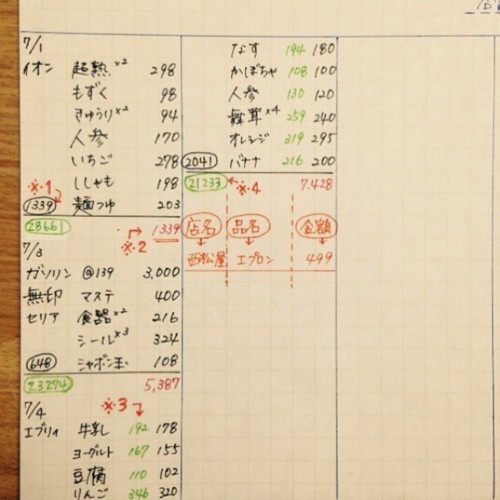 7/1
イオン 超熟×2 298
もずく 98
きゅうり×2 94
人参 170
いちご 278
ししゃも 198
※1
1339 麺つゆ 203
28661 1339
※2
7/3
ガソリン @139 3,000
無印 マステ 400
セリア 食器×2 216
シール×3 324
648 シャボン玉 108
23274 5,387
※3
7/4
エブリィ 牛乳 192 178
ヨーグルト 167 155
豆腐 110 102
りんご 346 320
なす 194 180
かぼちゃ 108 100
人参 130 120
舞茸×4 259 240
オレンジ 319 295
2041 バナナ 216 200
21233 ※4 7,428
店名 品名 金額
西松屋 エプロン 499